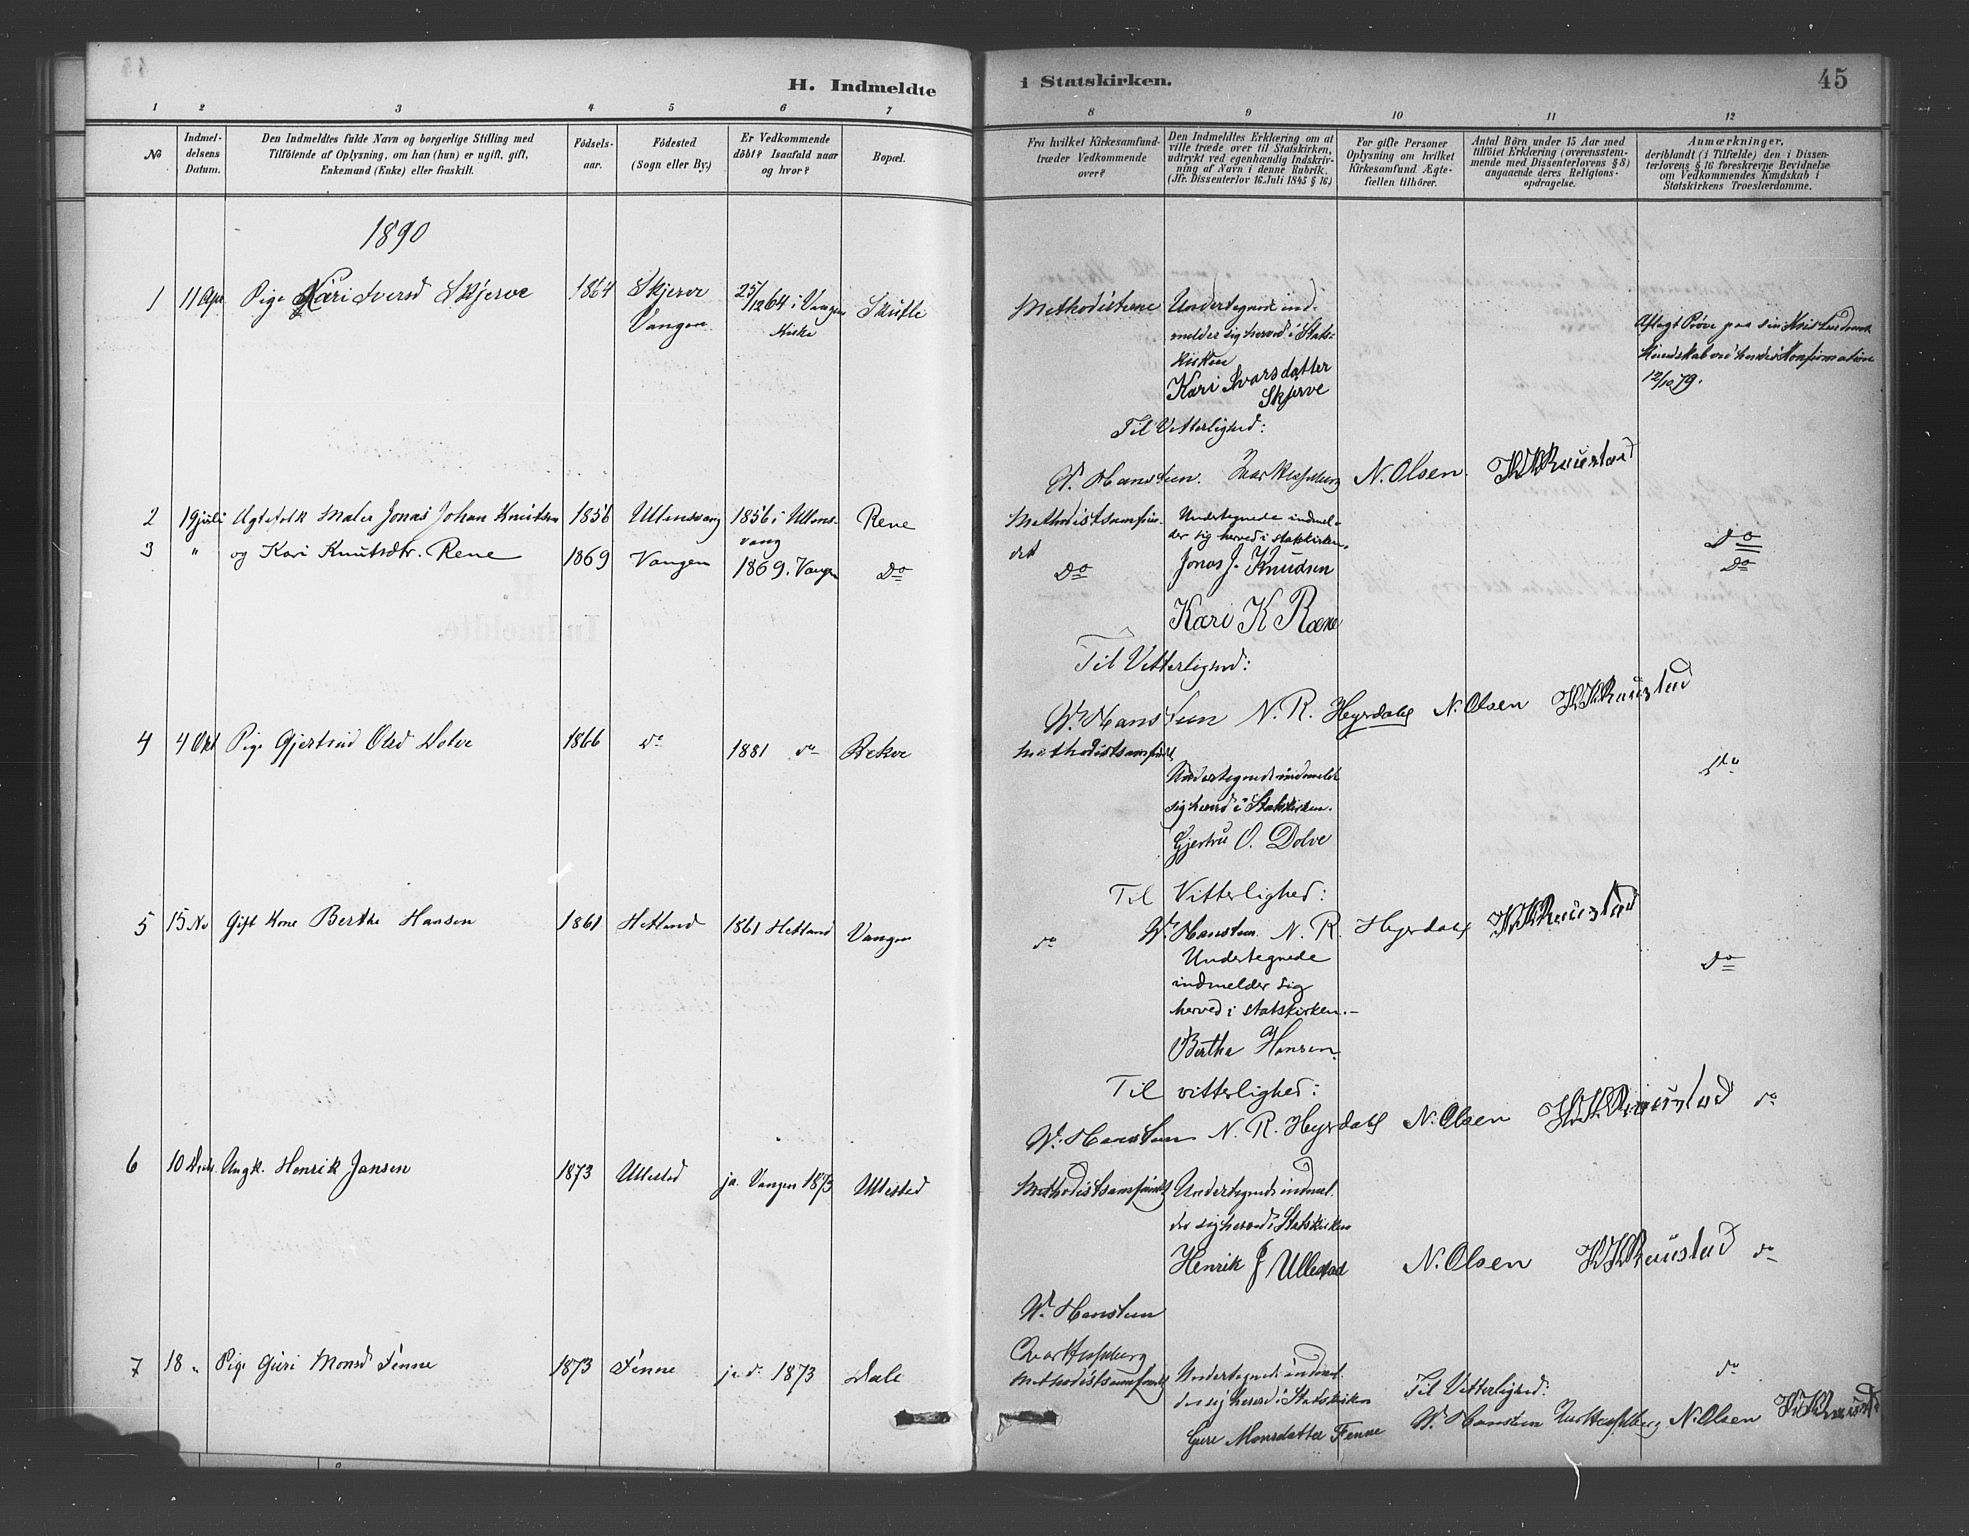 H. Indmeldte
i Statskirken.
45
1 2 3 4 5 6 7 8 9 10 11 12
No
Indmel-
delsens
Datum.
Den Indmeldtes fulde Navn og borgerlige Stilling med
Tilføiende af Oplysning, om han (hun) er ugift, gift,
Enkemand (Enke) eller fraskilt.
Fødsels-
aar.
Fødested
(Sogn eller By.)
Er Vedkommende
døbt? Isaafald naar
og hvor?
Bopæl.
Fra hvilket Kirkesamfund
træder Vedkommende
over?
Den Indmeldtes Erklæring om at
ville træde over til Statskirken,
udtrykt ved egenhændig Indskriv-
ning af Navn i denne Rubrik.
(Jfr. Dissenterlov 16. Juli 1845 § 16)
For gifte Personer
Oplysning om hvilket
Kirkesamfund Ægte-
fællen tilhører.
Antal Børn under 15 Aar med
tilføiet Erklæring (overensstem-
mende med Dissenterlovens § 8)
angaaende deres Religions-
opdragelse.
Anmærkninger,
deriblandt (i Tilfælde) den i Dissen-
terlovens § 16 foreskrevne Bevidnelse
om Vedkommendes Kundskab i
Statskirkens Troeslærdomme.
1890
1 11 Apr Pige Kari Iversd Skjerve 1864 Skjerve
Vangen
25/12 64 i Vangen
Kirke
Skutle
Methodisterne
Undertegnede ind-
melder sig herved i Stats-
kirken
Kari Ivarsdatter
Skjerve
Aflagt Prøve paa sin Kristendoms
Kundskab ved hendes Konfirmation
12/10 79.
Til Vitterlighed:
W. Hansteen. N. Olsen. K K Raustad
2 1 Juli Ægtefolk Maler Jonas Johan Knutsen 1856 Ullensvang 1856 i Ullens-
vang
Rene
3 " og Kari Knutsdtr. Rene 1869 Vangen 1869. Vangen Do
Methodistsamfun-
det
Do
Undertegnede indmel-
der sig herved i statskirken.
Jonas J. Knudsen
Kari K Rene
Do
Do
Til Vitterlighed:
W. Hansteen N. R. Heyerdahl N. Olsen K K Raustad
4 4 Okt Pige Gjertrud Olsd Dolve 1866 do 1881 do Rekve
Methodistsamfundet
Undertegnede indmelder
sig herved i Statskirken.
Gjertru O. Dolve
do
Til Vitterlighed:
W. Hansteen N. R. Heyerdahl K K Raustad
5 15 No Gift Kone Berthe Hansen 1861 Hetland 1861 Hetland Vangen
do
Undertegnede
indmelder sig
herved i statskirken.-
Berthe Hansen.
Do
Til vitterlighed:
W. Hansteen N. R. Heyerdahl N. Olsen K K Raustad do
6 10 Decbr. Ungk. Henrik Jansen 1873 Ullestad ja. Vangen 1873 Ullestad
Methodistsamfundet
Undertegnede indmel-
der sig herved i Statskirken
Henrik J Ullestad N. Olsen K K Raustad do
W. Hansteen
7 18 " Pige Guri Monsd Fenne 1873 Fenne ja d. 1873 Dale
Methodistsamfundet
Undertegnede indmel-
der sig herved i Statskirken
Guri Monsdatter Fenne
do
Til Vitterlighed:
W. Hansteen N. Olsen K K Raustad